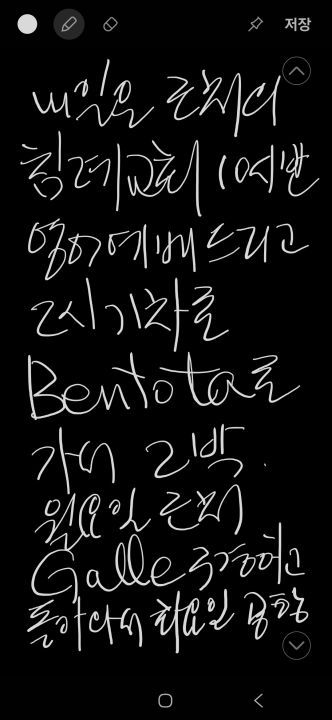 저장
내일은 근처의
침례교회 10시반
영어예배 드리고
2시 기차로
Bentota로
가서 2박.
월요일 근처
Galle 구경하고
돌아다녀 화요일 공항